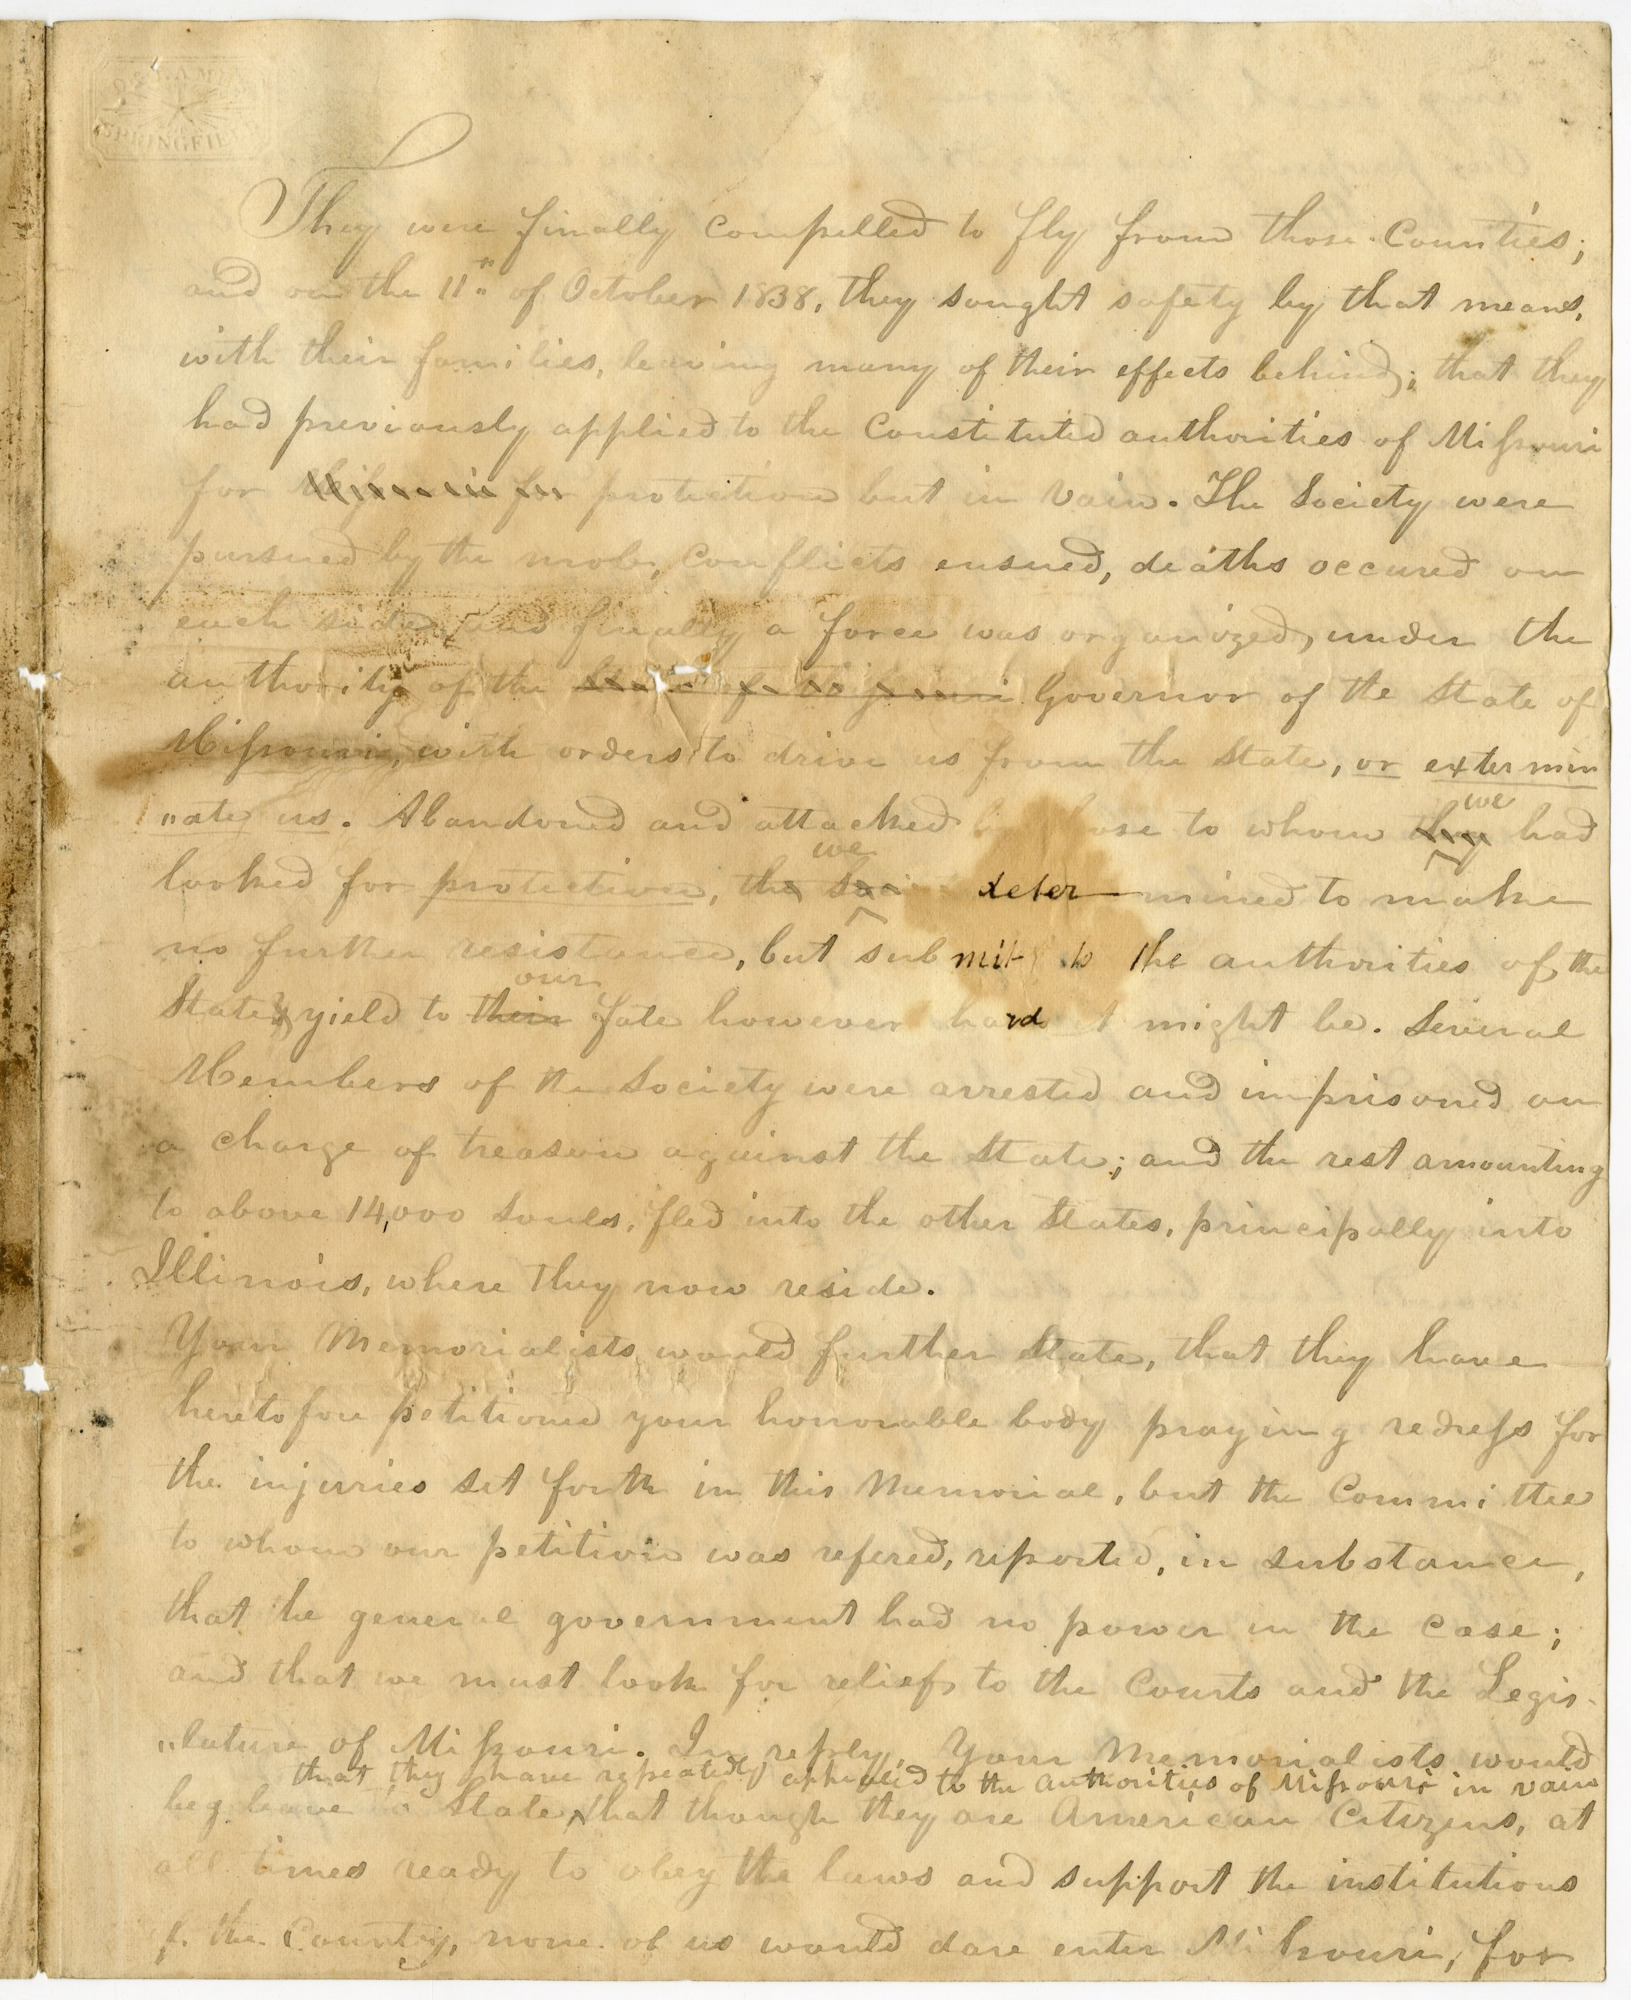 SPRINGFIELD
They were finally compelled to fly from those Counties;
and on the 11th of October 1838, they sought safety by that means,
with their families, leaving many of their effects behind; that they
had previously applied to the constituted authorities of Missouri
for protection but in vain. The Society were
pursued by the mob, conflicts ensued, deaths occured on
each side, and finally a force was organized, under the
authority of the State of Missouri Governor of the State of
Missouri, with orders to drive us from the State, or extermin
"ate us. Abandoned and attacked by those to whom they we had
looked for protection, the Soci we determined to make
no further resistance, but submit to the authorities of the
State & yield to their our fate however hard it might be. Several
Members of the Society were arrested and imprisoned on
a charge of treason against the State; and the rest amounting
to above 14,000 souls, fled into the other States, principally into
Illinois, where they now reside.
Your Memorialists would further State, that they have
heretofore petitioned your honorable body praying redress for
the injuries set forth in this Memorial, but the Committee
to whom our petition was refered, reported, in substance,
that the general government had no power in the case;
and that we must look for relief to the Courts and the Legis-
"lature of Missouri. In reply, Your Memorialists would
that they have repeatedly appealed to the authorities of Missouri in vain
beg leave to State, that though they are American Citizens, at
all times ready to obey the laws and support the institutions
of the Country, none of us would dare enter Missouri, for